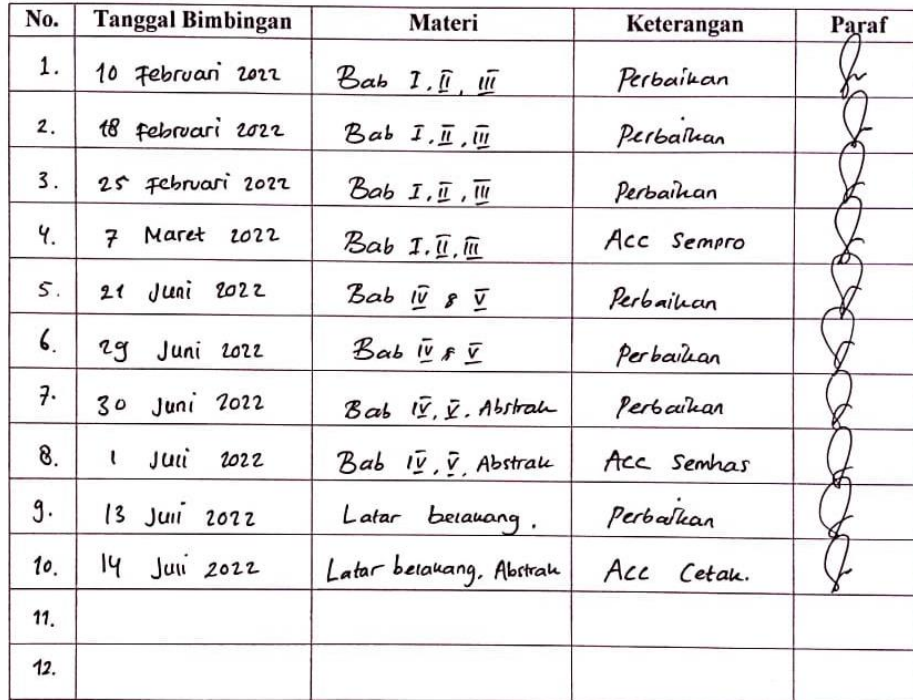 No. Tanggal Bimbingan Materi Keterangan Paraf
1. 10 Februari 2022 Bab I, II, III Perbaikan
2. 18 Februari 2022 Bab I, II, III Perbaikan
3. 25 Februari 2022 Bab I, II, III Perbaikan
4. 7 Maret 2022 Bab I, II, III Acc Sempro
5. 21 Juni 2022 Bab IV & V Perbaikan
6. 29 Juni 2022 Bab IV & V Perbaikan
7. 30 Juni 2022 Bab IV, V, Abstrak Perbaikan
8. 1 Juli 2022 Bab IV, V, Abstrak Acc Semhas
9. 13 Juli 2022 Latar belakang. Perbaikan
10. 14 Juli 2022 Latar belakang, Abstrak Acc Cetak.
11.
12.